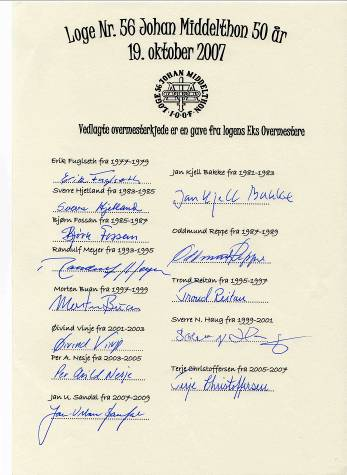 Loge Nr. 56 Johan Middelthon 50 år
19. oktober 2007
LOGE 56 JOHAN MIDDELTHON
I.O.O.F.
Vedlagte overmesterkjede er en gave fra logens Eks Overmestere
Erik Fuglseth fra 1977-1979
Erik Fuglseth
Jan Kjell Bakke fra 1981-1983
Jan Kjell Bakke
Sverre Hjelland fra 1983-1985
Sverre Hjelland
Bjørn Fossan fra 1985-1987
Bjørn Fossan
Oddmund Reppe fra 1987-1989
Oddmund Reppe
Randulf Meyer fra 1993-1995
Trond Reitan fra 1995-1997
Trond Reitan
Morten Bugn fra 1997-1999
Sverre N. Haug fra 1999-2001
Øivind Vinje fra 2001-2003
Øivind Vinje
Per A. Nesje fra 2003-2005
Per Arild Nesje
Terje Christoffersen fra 2005-2007
Terje Christoffersen
Jan U. Sandal fra 2007-2009